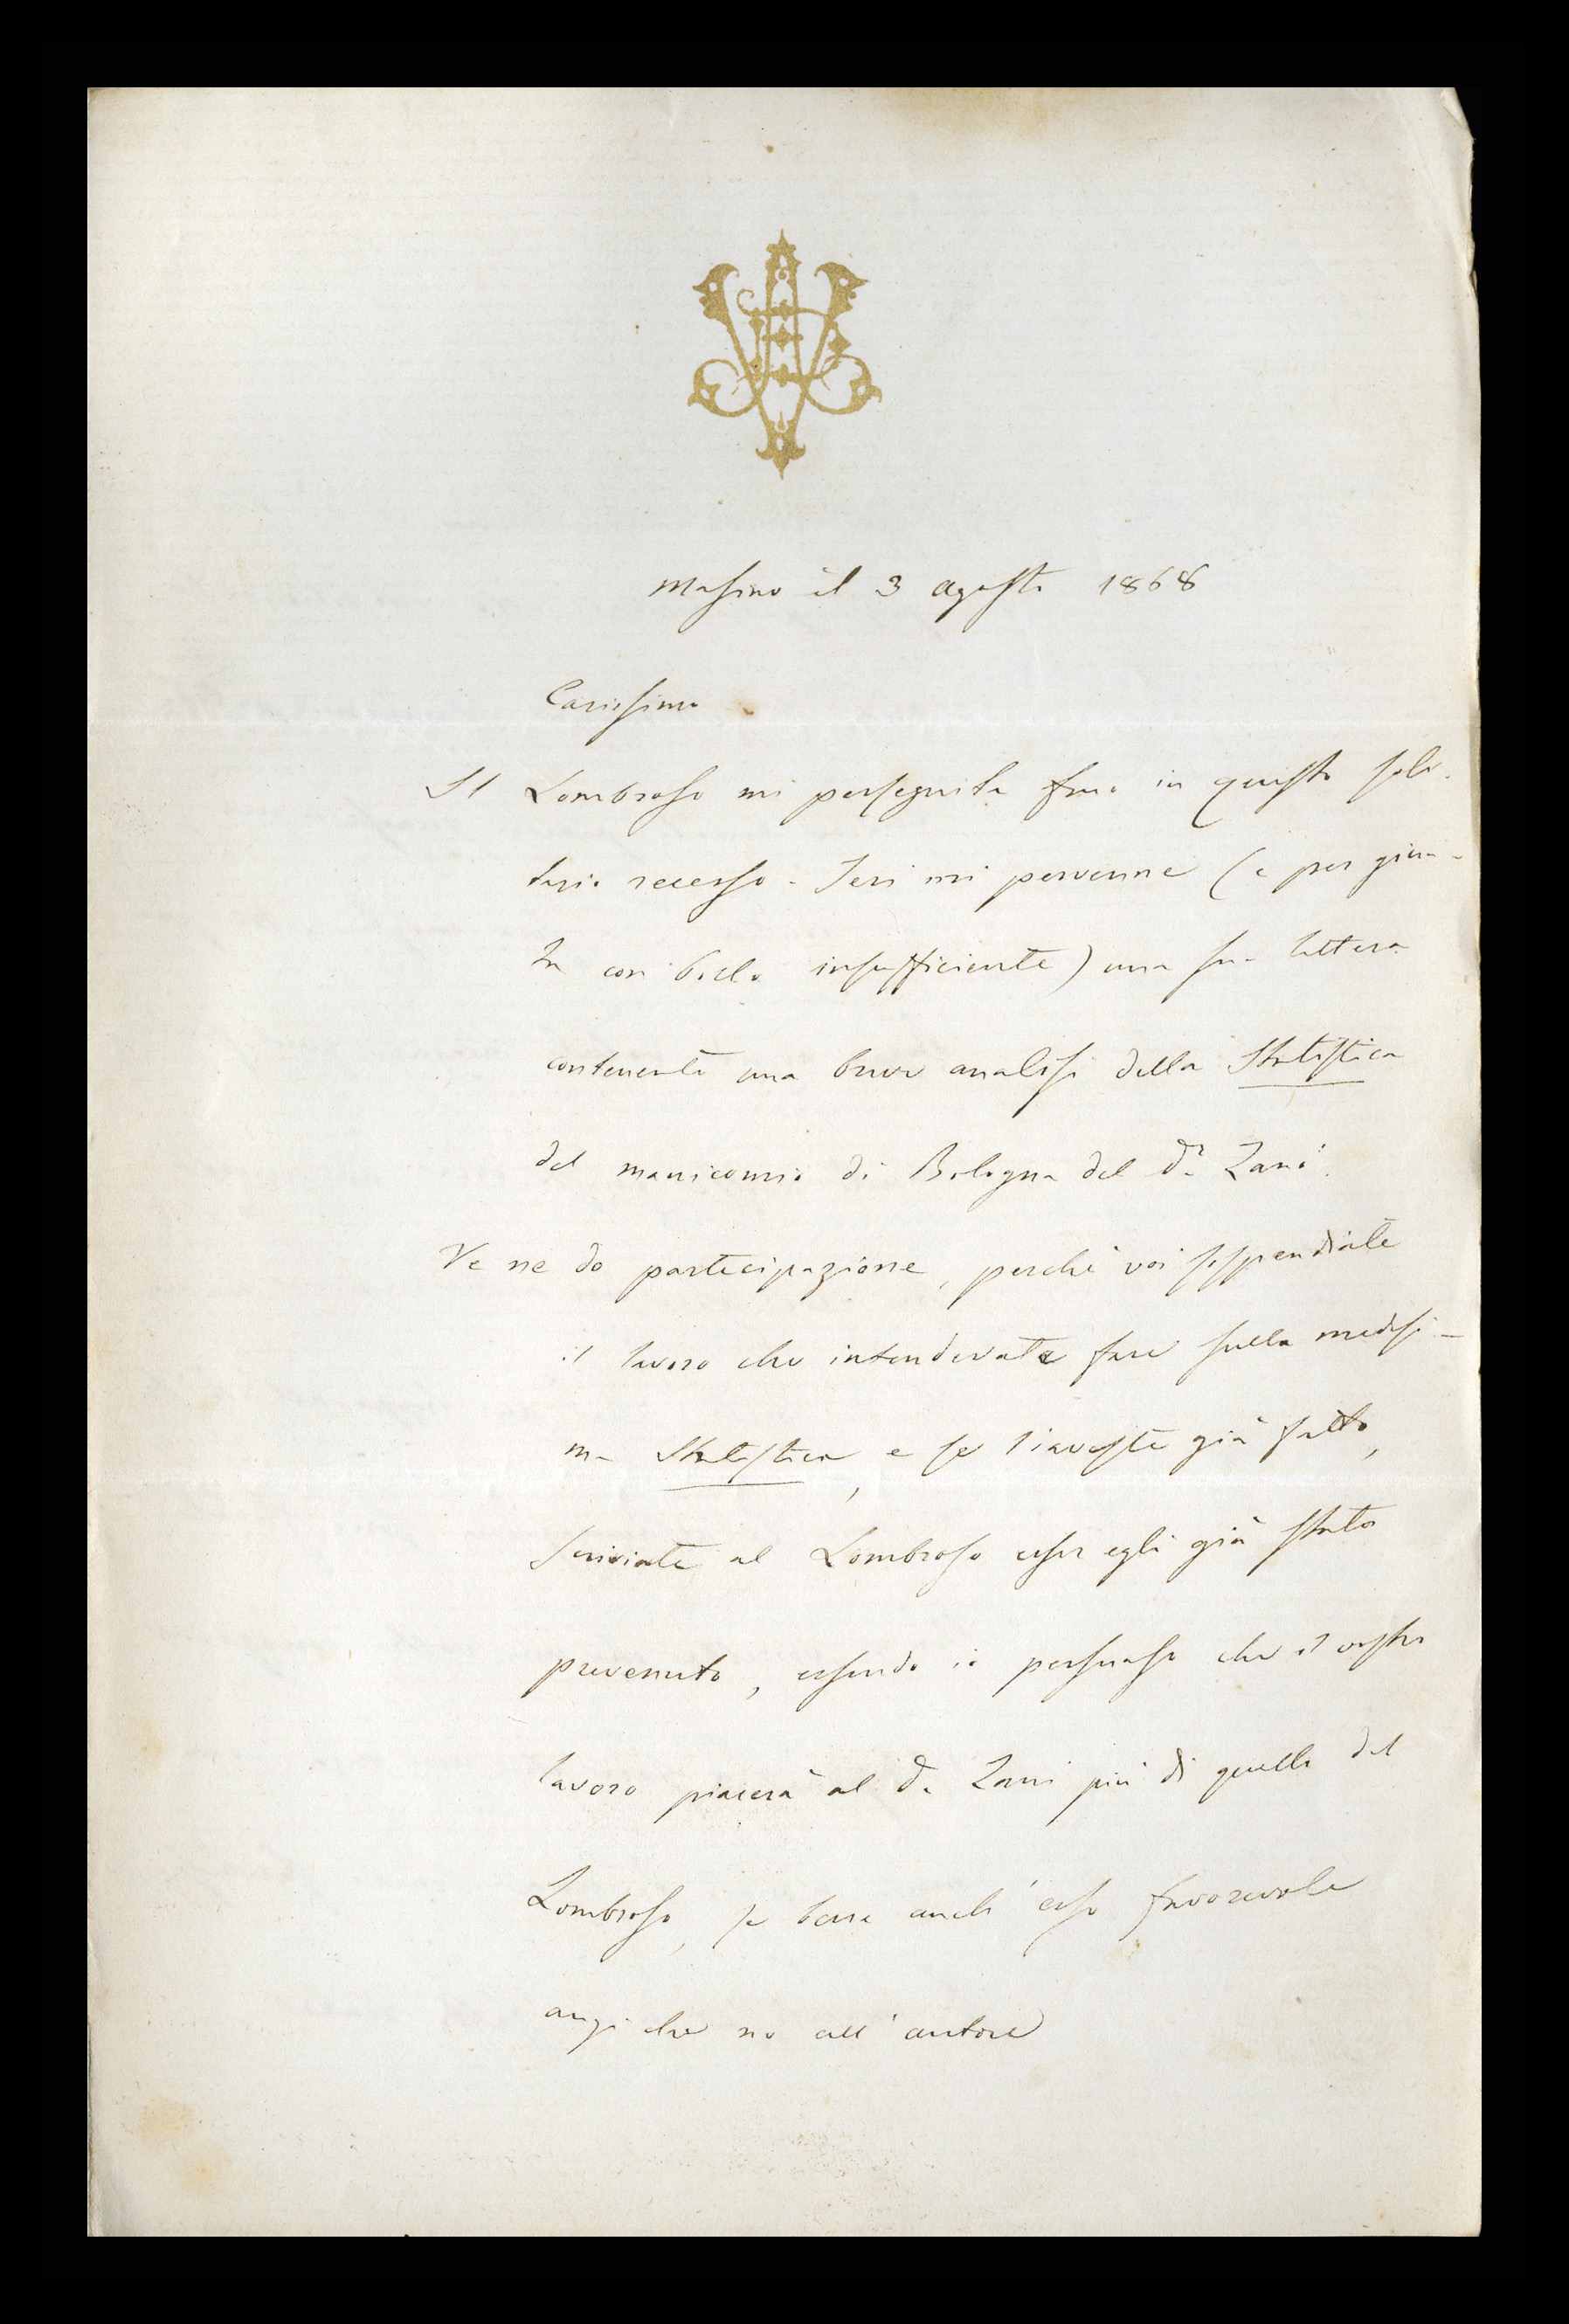 Masino il 3 agosto 1868
Carissimo
Il Lombroso mi perseguita fino in questo soli-
tario recesso. Ieri mi pervenne (e per giun-
ta con bollo insufficiente) una sua lettera
contenente una breve analisi della Statistica
del manicomio di Bologna del Dr Zani.
Ve ne do partecipazione, perchè voi sospendiate
il lavoro che intendevate fare sulla medesi-
ma Statistica, e se l'aveste già fatto,
scriviate al Lombroso esser egli già stato
prevenuto, essendo io persuaso che il vostro
lavoro piacerà al Dr Zani più di quello del
Lombroso, se bene anch'esso favorevole
anzi che no all'autore